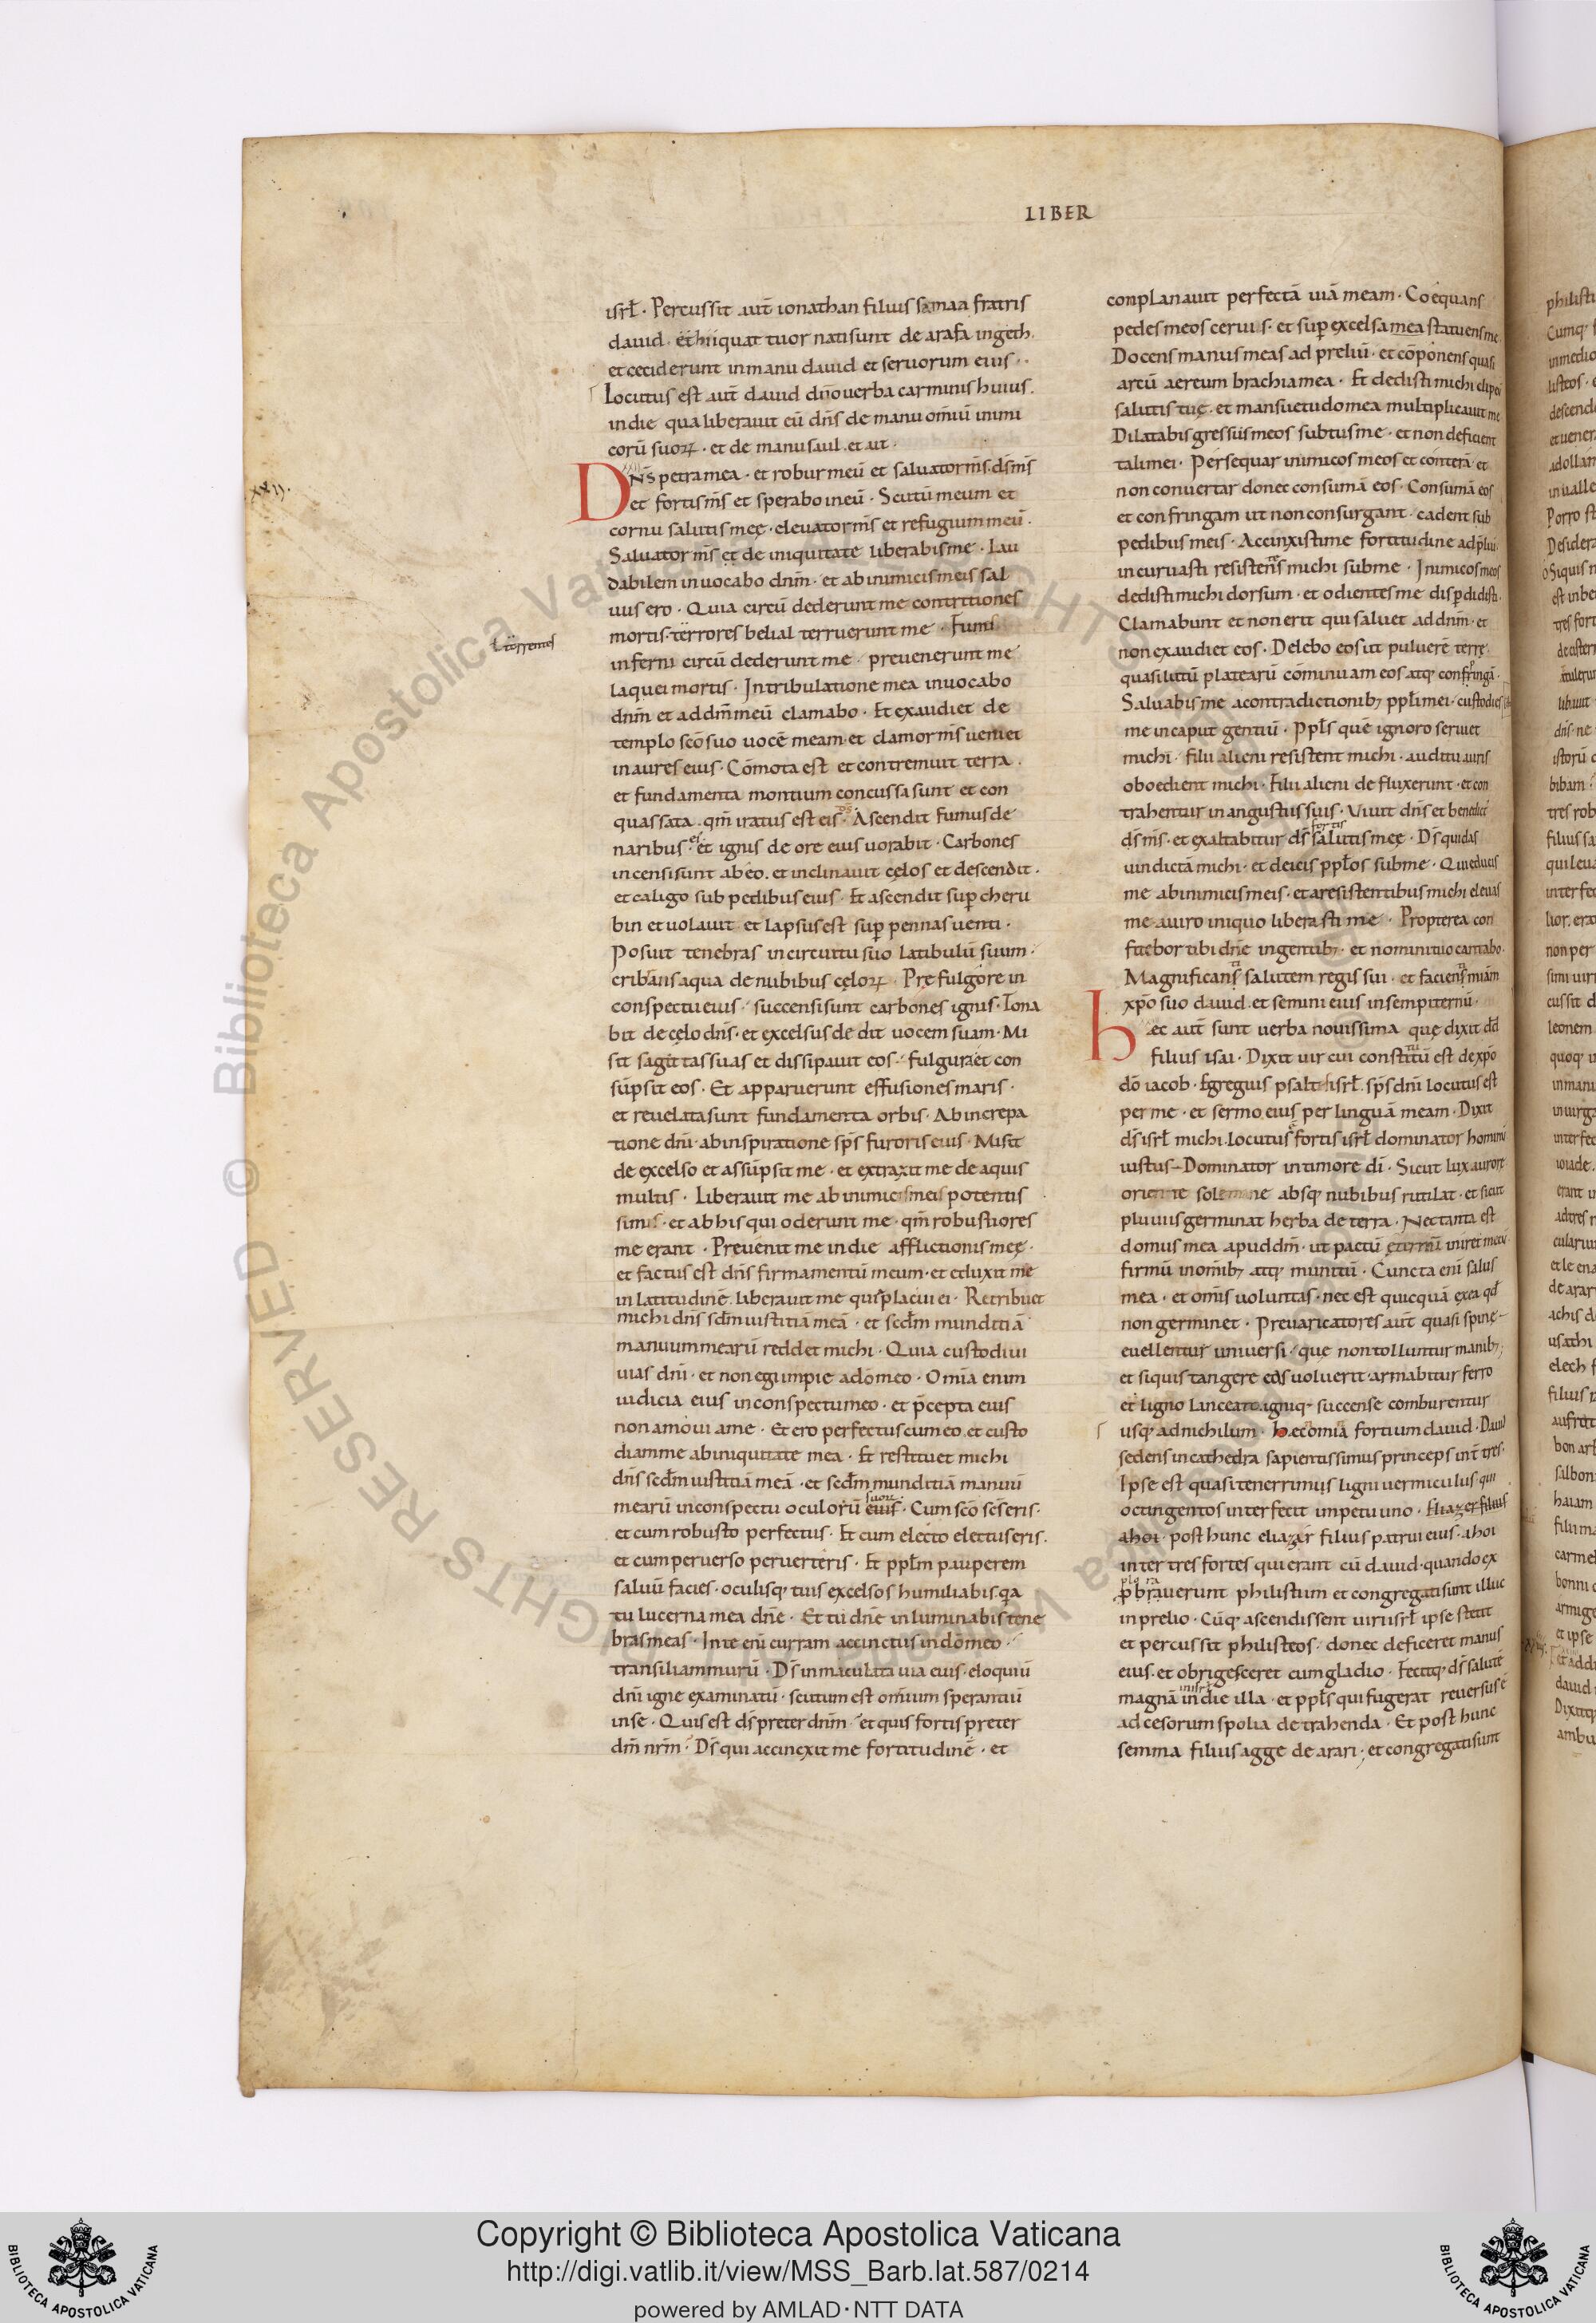 LIBER
isrł · Percussit aut̄ ionathan filius samaa fratris
dauid · et hii quattuor nati sunt de arafa in geth ·
et ceciderunt in manu dauid et seruorum eius ·
Locutus est aut̄ dauid dn̄o uerba carminis huius ·
in die qua liberauit eū dn̄s de manu om̄iū inimi
corū suoꝝ · et de manu saul · et ait ·
DNS̄ petra mea · et robur meū et saluator m̄s · ds̄ m̄s
et fortis m̄s et sperabo in eū · Scutū meum et
cornu salutis meę · eleuator m̄s et refugium meū ·
Saluator m̄s et de iniquitate liberabis me · Lau
dabilem inuocabo dnm̄ · et ab inimicis meis sal
uus ero · Quia circū dederunt me contritiones
mortis · terrores belial terruerunt me · Funi
ł torrentes
inferni circū dederunt me · preuenerunt me
laquei mortis · In tribulatione mea inuocabo
dnm̄ et ad dm̄ meū clamabo · Et exaudiet de
templo sc̄o suo uocē meam · et clamor m̄s ueniet
in aures eius · Cōmota est et contremuit terra ·
et fundamenta montium concussa sunt et con
quassata · qm̄ iratus est eis · Ascendit fumus de
naribus ei et ignis de ore eius uorabit · Carbones
incensi sunt ab eo · et inclinauit cęlos et descendit ·
et caligo sub pedibus eius · Et ascendit sup̄ cheru
bin et uolauit · et lapsus est sup̄ pennas uenti ·
Posuit tenebras in circuitu suo latibulū suum ·
cribans aqua de nubibus cęloꝝ · Prę fulgore in
conspectu eius · succensi sunt carbones ignis · Tona
bit de cęlo dn̄s · et excelsus dedit uocem suam · Mi
sit sagittas suas et dissipauit eos · fulgura et con
sūpsit eos · Et apparuerunt effusiones maris ·
et reuelata sunt fundamenta orbis · Ab increpa
tione dn̄i · ab inspiratione sps̄ furoris eius · Misit
de excelso et assūpsit me · et extraxit me de aquis
multis · Liberauit me ab inimicis meis potentis
simis · et ab his qui oderunt me · qm̄ robustiores
me erant · Preuenit me in die afflictionis meę ·
et factus est dn̄s firmamentū meum · et eduxit me
in latitudinē · liberauit me quia placui ei · Retribuet
michi dn̄s scd̄m iustitiā meā · et scd̄m munditiā
manuum mearū reddet michi · Quia custodiui
uias dn̄i · et non egi impie a dō meo · Omīa enim
iudicia eius in conspectu meo · et p̄cepta eius
non amoui a me · Et ero perfectus cum eo · et custo
diam me ab iniquitate mea · Et restituet michi
dn̄s scd̄m iustitiā meā · et scd̄m munditiā manuū
mearū in conspectu oculorū eius suoꝝ · Cum sc̄o sc̄s eris ·
et cum robusto perfectus · Et cum electo electus eris ·
et cum peruerso peruerteris · Et ppl̄m pauperem
saluū facies · oculisq; tuis excelsos humiliabis · q̄a
tu lucerna mea dn̄e · Et tu dn̄e inluminabis tene
bras meas · In te eni curram accinctus in dō meo ·
transiliam murū · Ds̄ inmaculata uia eius · eloquiū
dn̄i igne examinatū · scutum est om̄ium sperantiū
in se · Quis est ds̄ preter dnm̄ · et quis fortis preter
dm̄ nrm̄ · Ds̄ qui accinexit me fortitudinē · et
complanauit perfectā uiā meam · Coequans
pedes meos ceruis · et sup̄ excelsa mea statuens me ·
Docens manus meas ad preliū · et cōponens quasi
arcū aereum brachia mea · Et dedisti michi clipeū
salutis tuę · et mansuetudo mea multiplicauit me
Dilatabis gressus meos subtus me · et non deficient
tali mei · Persequar inimicos meos et conterā · et
non conuertar donec consumā eos · Consumā eos
et confringam ut non consurgant · cadent sub
pedibus meis · Accinxisti me fortitudine ad p̄liū ·
incuruasti resistens michi sub me · Inimicos meos
dedisti michi dorsum · et odientes me disp̄didisti ·
Clamabunt et non erit qui saluet ad dnm̄ · et
non exaudiet eos · Delebo eos ut puluerē terrę ·
quasi lutū platearū cōminuam eos atq; confringā ·
Saluabis me a contradictionib; ppl̄i mei · custodies
me in caput gentiū · Ppl̄s quē ignoro seruiet
michi · filii alieni resistent michi · auditu auris
oboedient michi · Filii alieni defluxerunt · et con
trahentur in angustiis suis · Viuit dn̄s et benedict
ds̄ m̄s · et exaltabitur ds̄ fortis salutis meę · Ds̄ qui das
uindictā michi · et deicis ppl̄os sub me · Qui educis
me ab inimicis meis · et a resistentibus michi eleuas
me · a uiro iniquo liberasti me · Propterea con
fitebor tibi dn̄e in gentib; · et nomini tuo cantabo ·
Magnificans salutem regis sui · et faciens miām
xp̄o suo dauid · et semini eius in sempiternū ·
hec aut̄ sunt uerba nouissima quę dixit dd̄
filius isai · Dixit uir cui constitutū est de xp̄o
dō iacob · Egregius psaltes isrł · sps̄ dn̄i locutus est
per me · et sermo eius per linguā meam · Dixit
ds̄ isrł michi · Locutus ē fortis isrł dominator hominū
iustus · Dominator in timore dī · Sicut lux aurorę
oriente sole mane absq; nubibus rutilat · et sicut
pluuiis germinat herba de terra · Nec tanta est
domus mea apud dm̄ · ut pactū ęternū iniret mecū
firmū in om̄ib; atq; munitū · Cuncta eni salus
mea · et om̄is uoluntas · nec est quicquā ex ea qd̄
non germinet · Preuaricatores aut̄ quasi spinę
euellentur uniuersi · que non tolluntur manib;
et si quis tangere eas uoluerit · armabitur ferro
et ligno lanceato · igniq; succense comburentur
usq; ad nichilum · hec nomina fortium dauid · Dauid
sedens in cathedra sapientissimus princeps int̄ tres ·
Ipse est quasi tenerrimus ligni uermiculus · qui
octingentos interfecit impetu uno · Eliazer filius
ahoi · post hunc eliazar filius patrui eius · ahoi
inter tres fortes qui erant cū dauid · quando ex
p̄brauerunt philistiim et congregati sunt illuc
in prelio · Cūq; ascendissent uiri isrł ipse stetit
et percussit philisteos · donec deficeret manus
eius · et obrigesceret cum gladio · Fecitq; ds̄ salutē
magnā in die illa · et ppl̄s qui fugerat reuersus ē
ad cesorum spolia detrahenda · Et post hunc
semma filius agge de arari · et congregati sunt
Copyright © Biblioteca Apostolica Vaticana
http://digi.vatlib.it/view/MSS_Barb.lat.587/0214
powered by AMLAD·NTT DATA
BIBLIOTECA APOSTOLICA VATICANA
BIBLIOTECA APOSTOLICA VATICANA